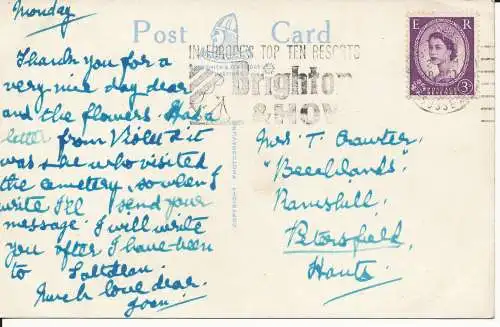 Monday
Post Card
IN EUROPE'S TOP TEN RESORTS
Brighton
& HOV
E R
3D
Thank you for a
very nice day dear
and the flowers. Had a
letter from Violet & it
was she who visited
the cemetery, so when I
write I'll send your
message. I will write
you after I have been
to Saltdean.
Much love dear.
Joan.
COPYRIGHT PHOTOGRAVURE
Mrs. T. Crawter,
"Beechlands"
Ramshill,
Petersfield,
Hants.